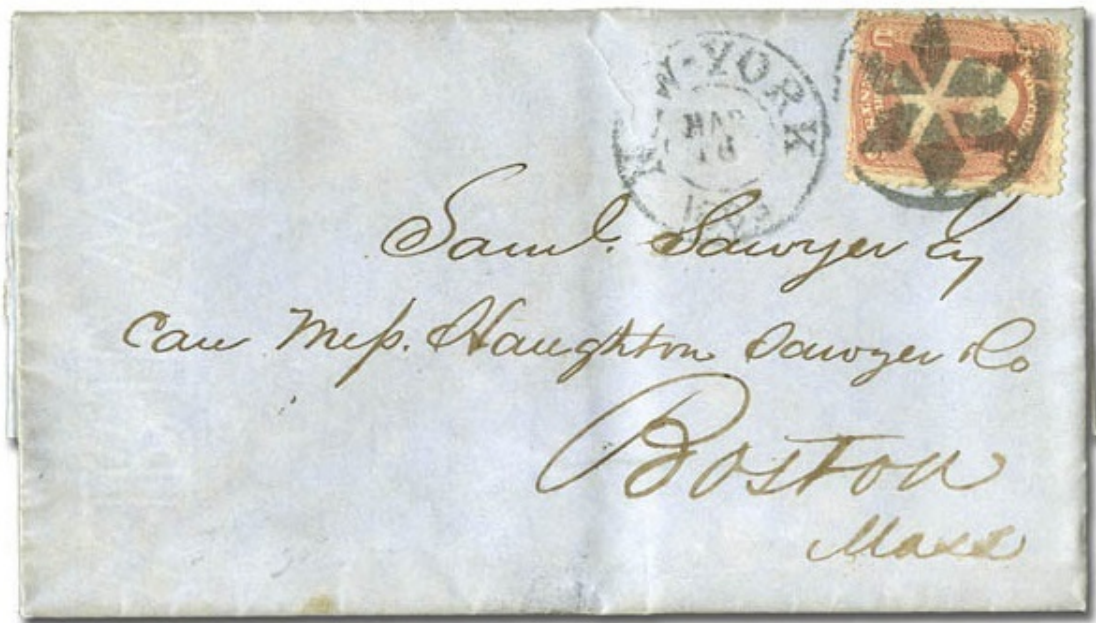 NEW-YORK
MAR
18
Saml. Sawyer Esq
Care Mess. Haughton Sawyer & Co
Boston
Mass